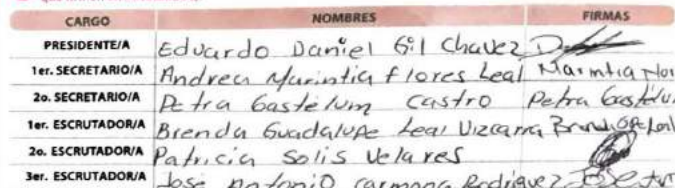 CARGO NOMBRES FIRMAS
PRESIDENTE/A Eduardo Daniel Gil Chavez
1er. SECRETARIO/A Andrea Marintia flores Leal Marintia Flo
2o. SECRETARIO/A Petra Gastélum Castro Petra Gastélu
1er. ESCRUTADOR/A Brenda Guadalupe Leal Vizcarra
2o. ESCRUTADOR/A Patricia Solis Velares
3er. ESCRUTADOR/A Jose Antonio Carmona Rodriguez